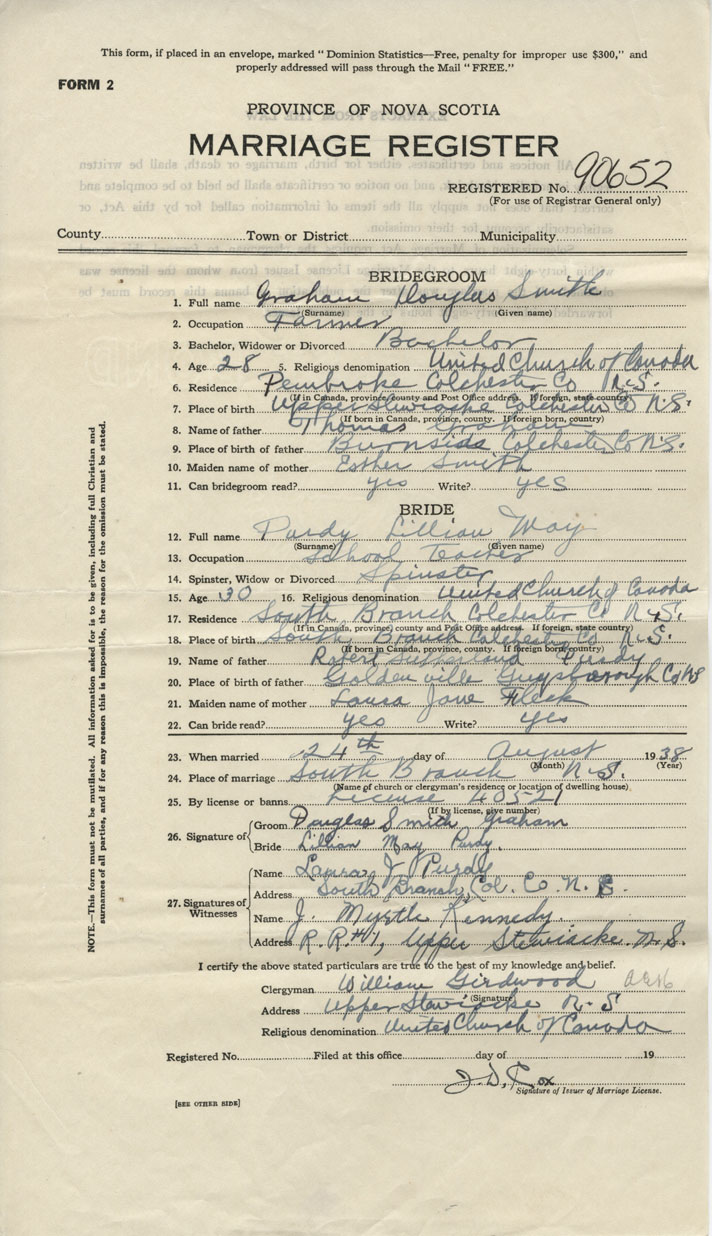 This form, if placed in an envelope, marked "Dominion Statistics—Free, penalty for improper use $300," and
properly addressed will pass through the Mail "FREE."
FORM 2
PROVINCE OF NOVA SCOTIA
MARRIAGE REGISTER
REGISTERED No. 90652
(For use of Registrar General only)
County Town or District Municipality
BRIDEGROOM
1. Full name Graham Douglas Smith
(Surname) (Given name)
2. Occupation Farmer
3. Bachelor, Widower or Divorced Bachelor
4. Age 28 5. Religious denomination United Church of Canada
6. Residence Pembroke Colchester Co N.S.
(If in Canada, province, county and Post Office address. If foreign, state country)
7. Place of birth Upper Stewiacke Colchester Co N.S.
(If born in Canada, province, county. If foreign born, country)
8. Name of father Thomas Graham
9. Place of birth of father Burnside Colchester Co N.S.
10. Maiden name of mother Esther Smith
11. Can bridegroom read? yes Write? yes
BRIDE
12. Full name Purdy Lillian May
(Surname) (Given name)
13. Occupation School Teacher
14. Spinster, Widow or Divorced Spinster
15. Age 30 16. Religious denomination United Church of Canada
17. Residence South Branch Colchester Co N.S.
(If in Canada, province, county and Post Office address. If foreign, state country)
18. Place of birth South Branch Colchester Co N.S.
(If born in Canada, province, county. If foreign born, country)
19. Name of father Robert Sutherland Purdy
20. Place of birth of father Goldenville Guysborough Co NS
21. Maiden name of mother Laura Jane Fleck
22. Can bride read? yes Write? yes
23. When married 24th day of August 1938
(Month) (Year)
24. Place of marriage South Branch N.S.
(Name of church or clergyman's residence or location of dwelling house)
25. By license or banns License 405-21
(If by license, give number)
26. Signature of
Groom Douglas Smith Graham
Bride Lillian May Purdy.
27. Signatures of Witnesses
Name Laura J Purdy
Address South Branch, Col. Co. N. S.
Name J. Myrtle Kennedy.
Address R. R. #1, Upper Stewiacke. N. S.
I certify the above stated particulars are true to the best of my knowledge and belief.
Clergyman William Girdwood
(Signature)
Address Upper Stewiacke N. S
Religious denomination United Church of Canada
Registered No. Filed at this office day of 19
J. D. Cox
Signature of Issuer of Marriage License.
[SEE OTHER SIDE]
NOTE.—This form must not be mutilated. All information asked for is to be given, including full Christian and
surnames of all parties, and if for any reason this is impossible, the reason for the omission must be stated.